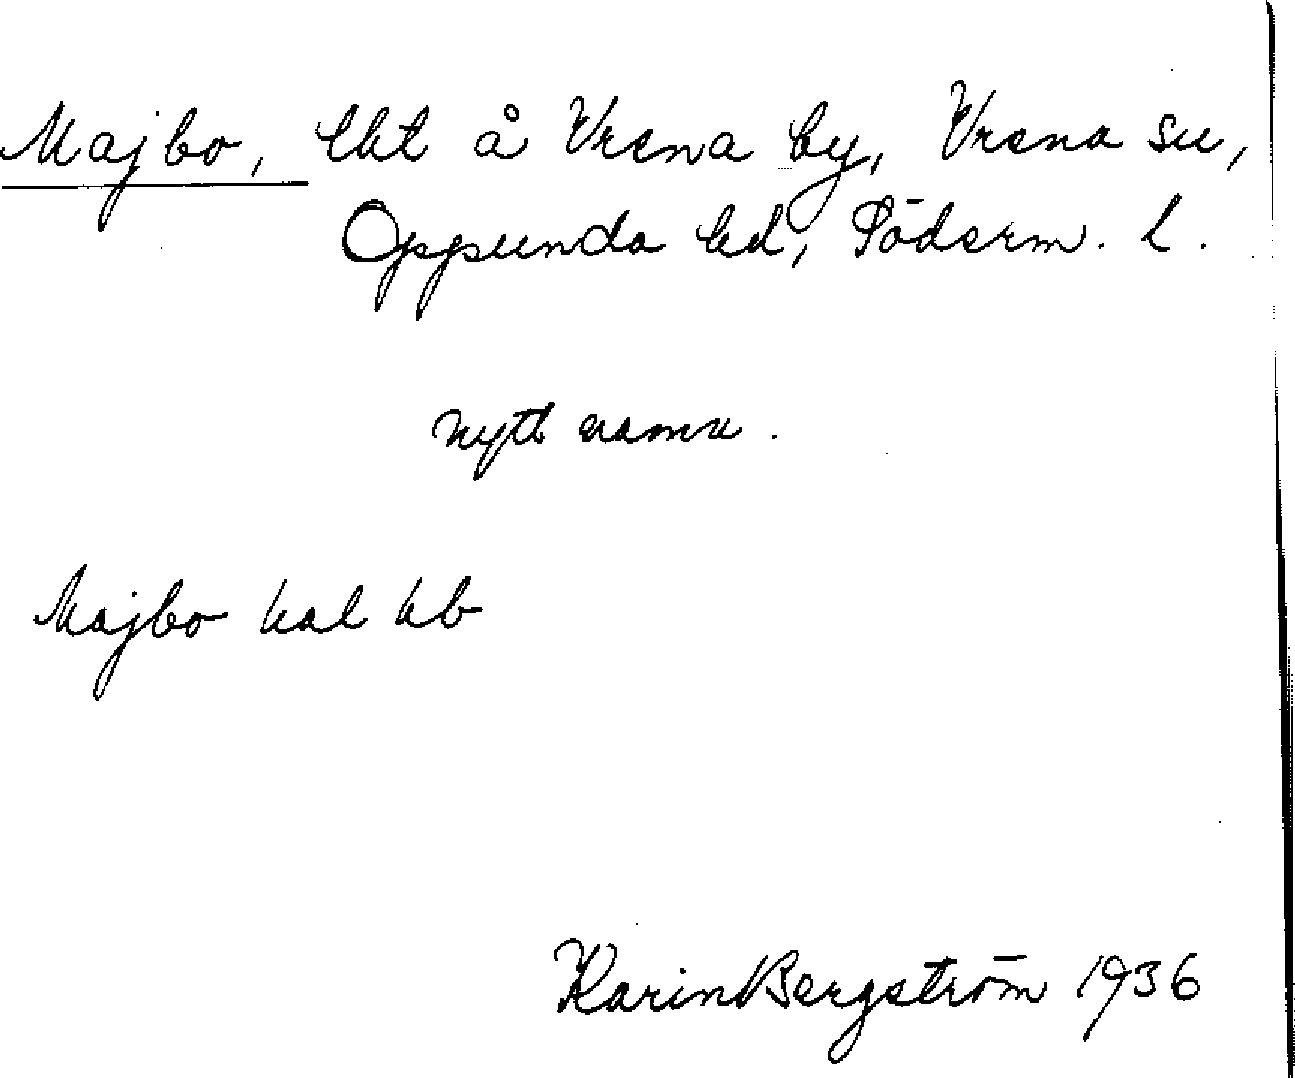 Majbo, lht å Vrena by, Vrena sn,
Oppunda hd, Söderm. l.
nytt namn.
Majbo kal kb
Karin Bergström 1936